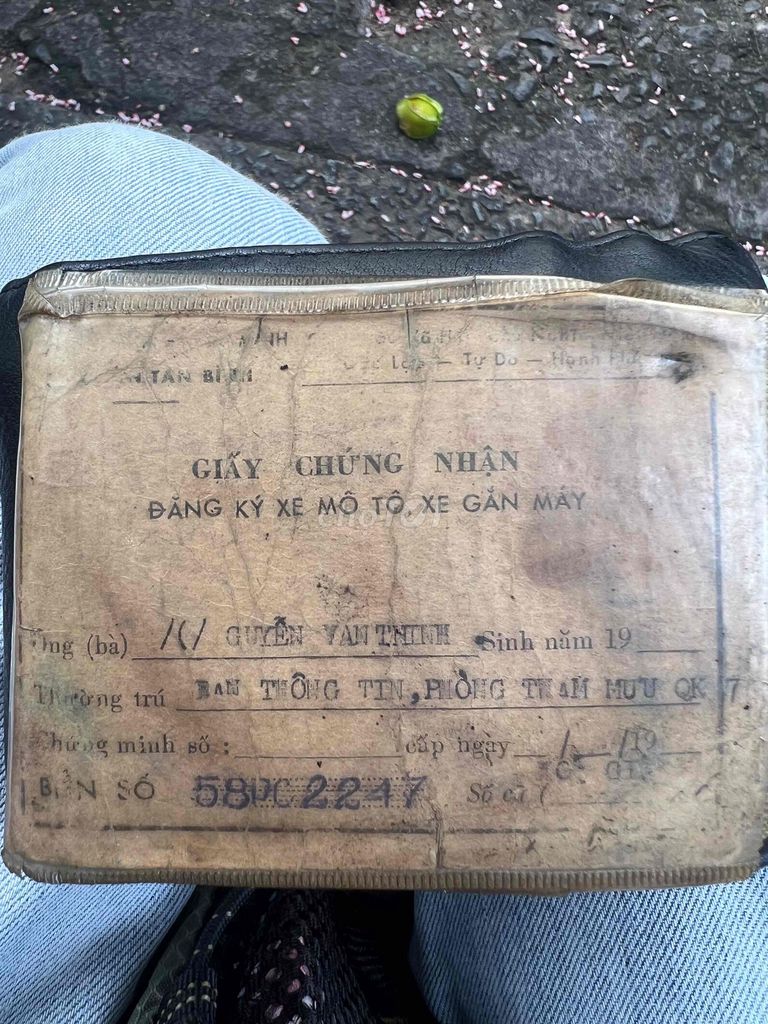 TÂN BÌNH
Tự Do — Hạnh
GIẤY CHỨNG NHẬN
ĐĂNG KÝ XE MÔ TÔ, XE GẮN MÁY
Ông (bà) GUYỄN VAN THINH Sinh năm 19
Thường trú BAN THÔNG TIN, PHÒNG THAM MƯU QK 7
Chứng minh số : cấp ngày / /19
BIỂN SỐ 58DC2247 Số cũ (